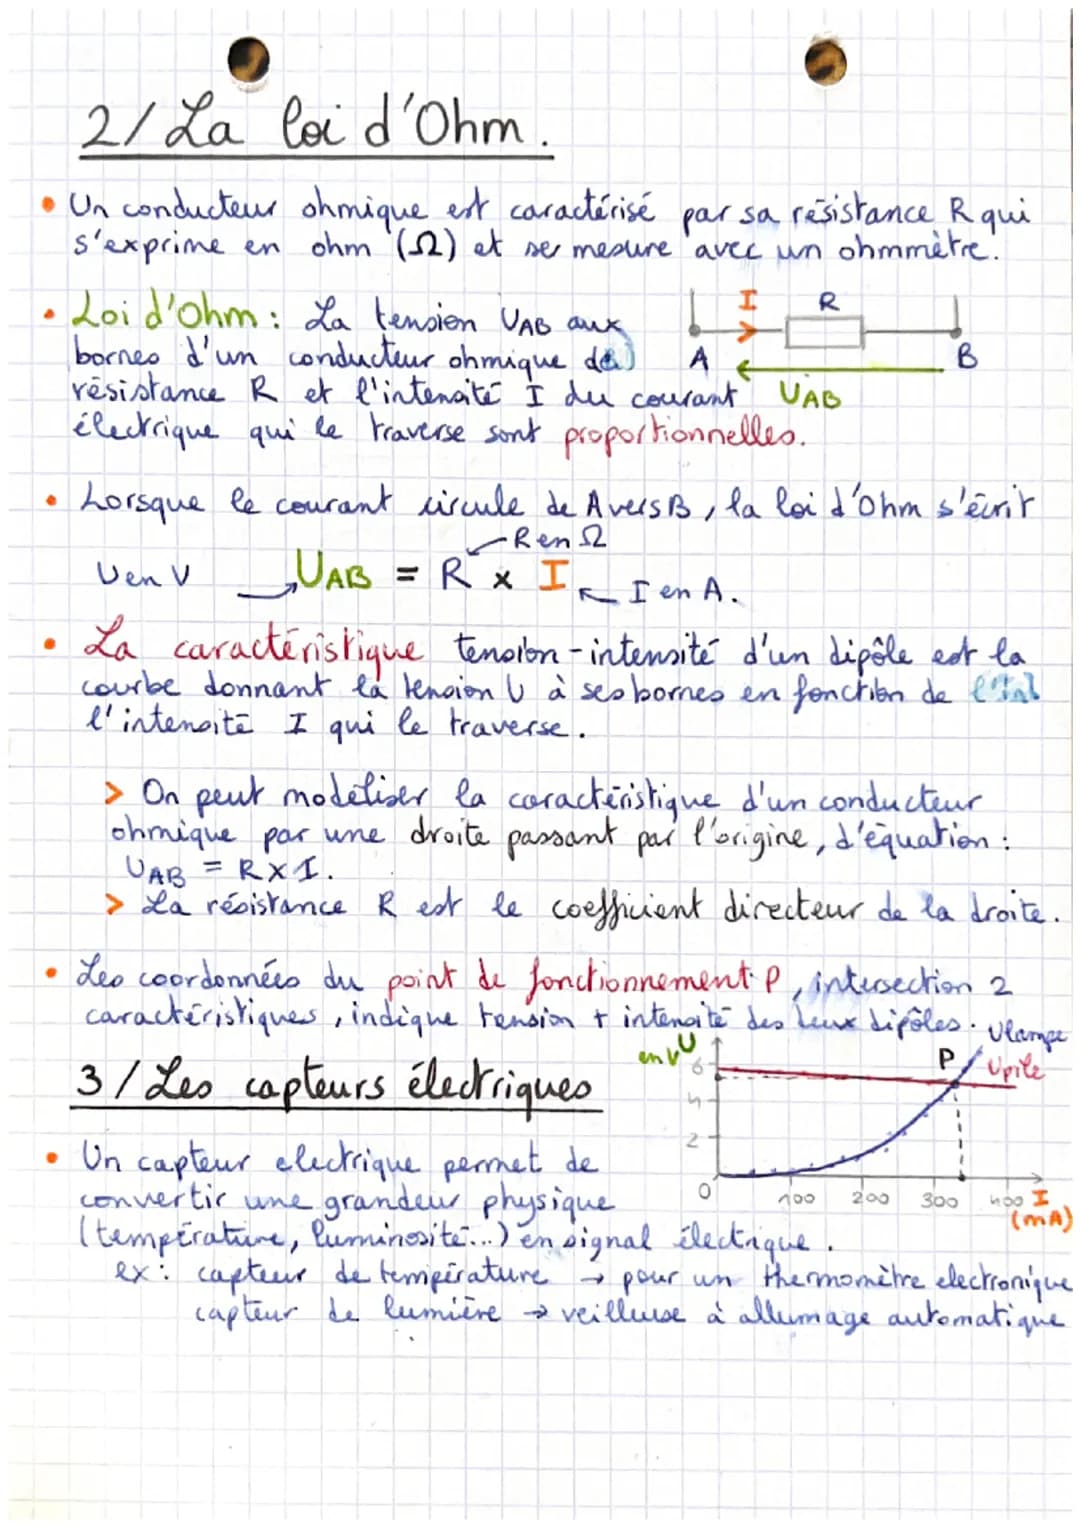 2/ La loi d'Ohm.
• Un conducteur ohmique est caractérisé par sa résistance R qui
s'exprime en ohm (Ω) et se mesure avec un ohmmètre.
• Loi d'Ohm : La tension UAB aux
bornes d'un conducteur ohmique de
résistance R et l'intensité I du courant
électrique qui le traverse sont proportionnelles.
I R
A B
UAB
• Lorsque le courant circule de A vers B, la loi d'Ohm s'écrit
R en Ω
U en V UAB = R x I I en A.
• La caractéristique tension-intensité d'un dipôle est la
courbe donnant la tension U à ses bornes en fonction de
l'intensité I qui le traverse.
> On peut modéliser la caractéristique d'un conducteur
ohmique par une droite passant par l'origine, d'équation :
UAB = R x I.
> La résistance R est le coefficient directeur de la droite.
• Les coordonnées du point de fonctionnement P, intersection 2
caractéristiques, indique tension + intensité des deux dipôles.
3/ Les capteurs électriques
U en V
6
4
2
0 100 200 300 400 I
(mA)
P
Ulampe
Upile
• Un capteur electrique permet de
convertir une grandeur physique
(température, luminosité...) en signal électrique.
ex : capteur de température → pour un thermomètre electronique
capteur de lumière → veilleuse à allumage automatique